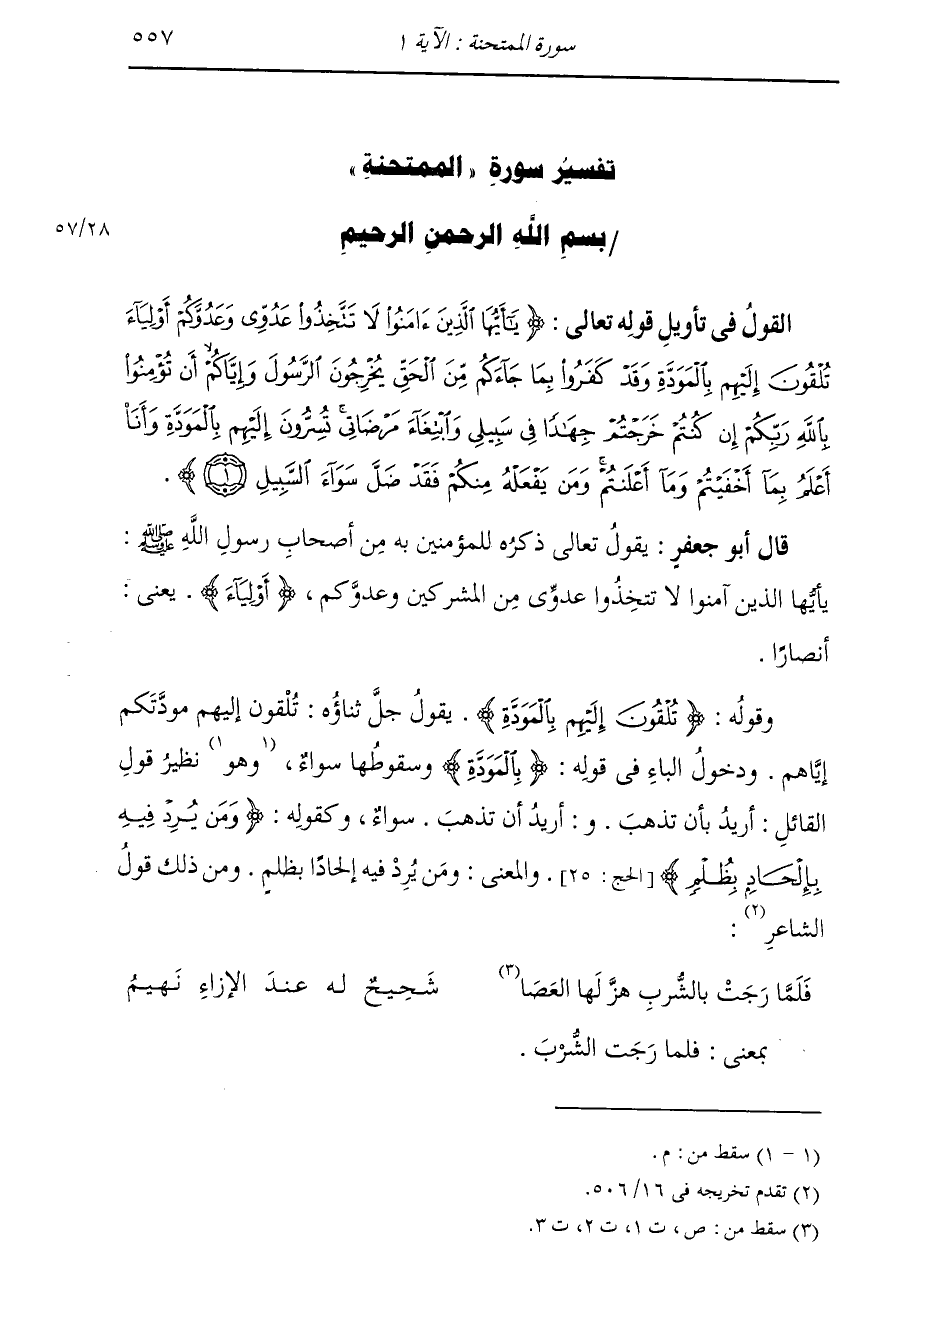 سورة الممتحنة : الآية ١ ٥٥٧
تفسيرُ سورةِ « الممتحنةِ »
/بسمِ اللَّهِ الرحمنِ الرحيمِ ٥٧/٢٨
القولُ فى تأويلِ قولِه تعالى : ﴿ يَٰٓأَيُّهَا ٱلَّذِينَ ءَامَنُوا۟ لَا تَنَّخِذُوا۟ عَدُوِّى وَعَدُوَّكُمْ أَوْلِيَآءَ
تُلْقُونَ إِلَيْهِم بِٱلْمَوَدَّةِ وَقَدْ كَفَرُوا۟ بِمَا جَآءَكُم مِّنَ ٱلْحَقِّ يُخْرِجُونَ ٱلرَّسُولَ وَإِيَّاكُمْ ۙ أَن تُؤْمِنُوا۟
بِٱللَّهِ رَبِّكُمْ إِن كُنتُمْ خَرَجْتُمْ جِهَٰدًا فِى سَبِيلِى وَٱبْتِغَآءَ مَرْضَاتِى ۚ تُسِرُّونَ إِلَيْهِم بِٱلْمَوَدَّةِ وَأَنَا۠
أَعْلَمُ بِمَآ أَخْفَيْتُمْ وَمَآ أَعْلَنتُمْ ۚ وَمَن يَفْعَلْهُ مِنكُمْ فَقَدْ ضَلَّ سَوَآءَ ٱلسَّبِيلِ ١ ﴾ .
قال أبو جعفرٍ : يقولُ تعالى ذكرُه للمؤمنين به مِن أصحابِ رسولِ اللَّهِ ﷺ :
يأيُّها الذين آمنوا لا تتخِذُوا عدوِّى مِن المشركين وعدوَّكم ، ﴿ أَوْلِيَآءَ ﴾ . يعنى :
أنصارًا .
وقولُه : ﴿ تُلْقُونَ إِلَيْهِم بِٱلْمَوَدَّةِ ﴾ . يقولُ جلَّ ثناؤُه : تُلْقون إليهم مودَّتَكم
إيَّاهم . ودخولُ الباءِ فى قولِه : ﴿ بِٱلْمَوَدَّةِ ﴾ وسقوطُها سواءٌ ، (١ وهو ١) نظيرُ قولِ
القائلِ : أريدُ بأن تذهبَ . و : أريدُ أن تذهبَ . سواءٌ ، وكقولِه : ﴿ وَمَن يُرِدْ فِيهِ
بِإِلْحَادٍ بِظُلْمٍ ﴾ [الحج : ٢٥] . والمعنى : ومَن يُرِدْ فيه إلحادًا بظلمٍ . ومن ذلك قولُ
الشاعرِ (٢) :
فَلَمَّا رَجَتْ بالشُّربِ هزَّ لَها العَصَا (٣) شَحِيحٌ له عندَ الإزاءِ نَهيمُ
بمعنى : فلما رَجَت الشُّرْبَ .
(١ - ١) سقط من : م .
(٢) تقدم تخريجه فى ١٦/ ٥٠٦.
(٣) سقط من : ص ، ت ١، ت ٢، ت ٣.